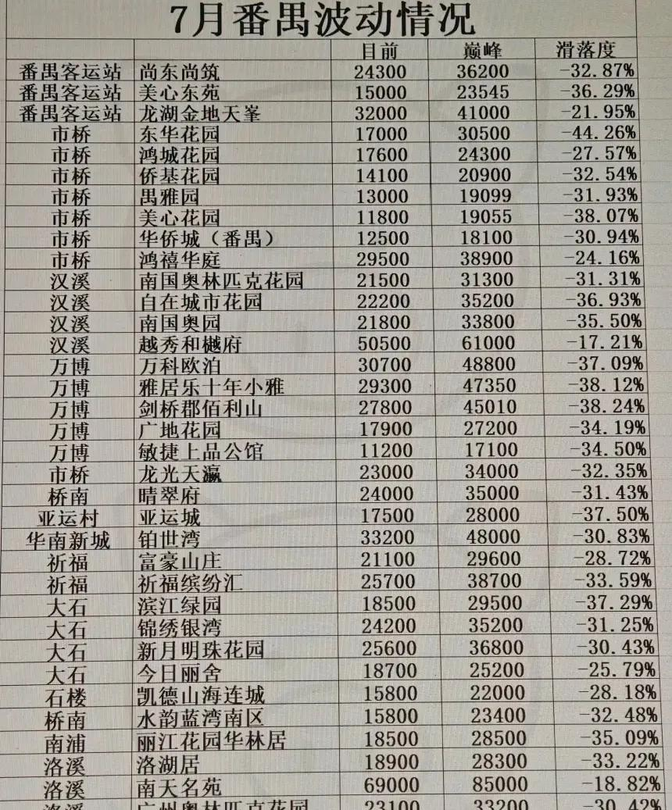 7月番禺波动情况
目前 巅峰 滑落度
番禺客运站 尚东尚筑 24300 36200 -32.87%
番禺客运站 美心东苑 15000 23545 -36.29%
番禺客运站 龙湖金地天峯 32000 41000 -21.95%
市桥 东华花园 17000 30500 -44.26%
市桥 鸿城花园 17600 24300 -27.57%
市桥 侨基花园 14100 20900 -32.54%
市桥 禺雅园 13000 19099 -31.93%
市桥 美心花园 11800 19055 -38.07%
市桥 华侨城（番禺） 12500 18100 -30.94%
市桥 鸿禧华庭 29500 38900 -24.16%
汉溪 南国奥林匹克花园 21500 31300 -31.31%
汉溪 自在城市花园 22200 35200 -36.93%
汉溪 南国奥园 21800 33800 -35.50%
汉溪 越秀和樾府 50500 61000 -17.21%
万博 万科欧泊 30700 48800 -37.09%
万博 雅居乐十年小雅 29300 47350 -38.12%
万博 剑桥郡佰利山 27800 45010 -38.24%
万博 广地花园 17900 27200 -34.19%
万博 敏捷上品公馆 11200 17100 -34.50%
市桥 龙光天瀛 23000 34000 -32.35%
桥南 晴翠府 24000 35000 -31.43%
亚运村 亚运城 17500 28000 -37.50%
华南新城 铂世湾 33200 48000 -30.83%
祈福 富豪山庄 21100 29600 -28.72%
祈福 祈福缤纷汇 25700 38700 -33.59%
大石 滨江绿园 18500 29500 -37.29%
大石 锦绣银湾 24200 35200 -31.25%
大石 新月明珠花园 25600 36800 -30.43%
大石 今日丽舍 18700 25200 -25.79%
石楼 凯德山海连城 15800 22000 -28.18%
桥南 水韵蓝湾南区 15800 23400 -32.48%
南浦 丽江花园华林居 18500 28500 -35.09%
洛溪 洛湖居 18900 28300 -33.22%
洛溪 南天名苑 69000 85000 -18.82%
洛溪 广州奥林匹克花园 23100 33200 -30.42%